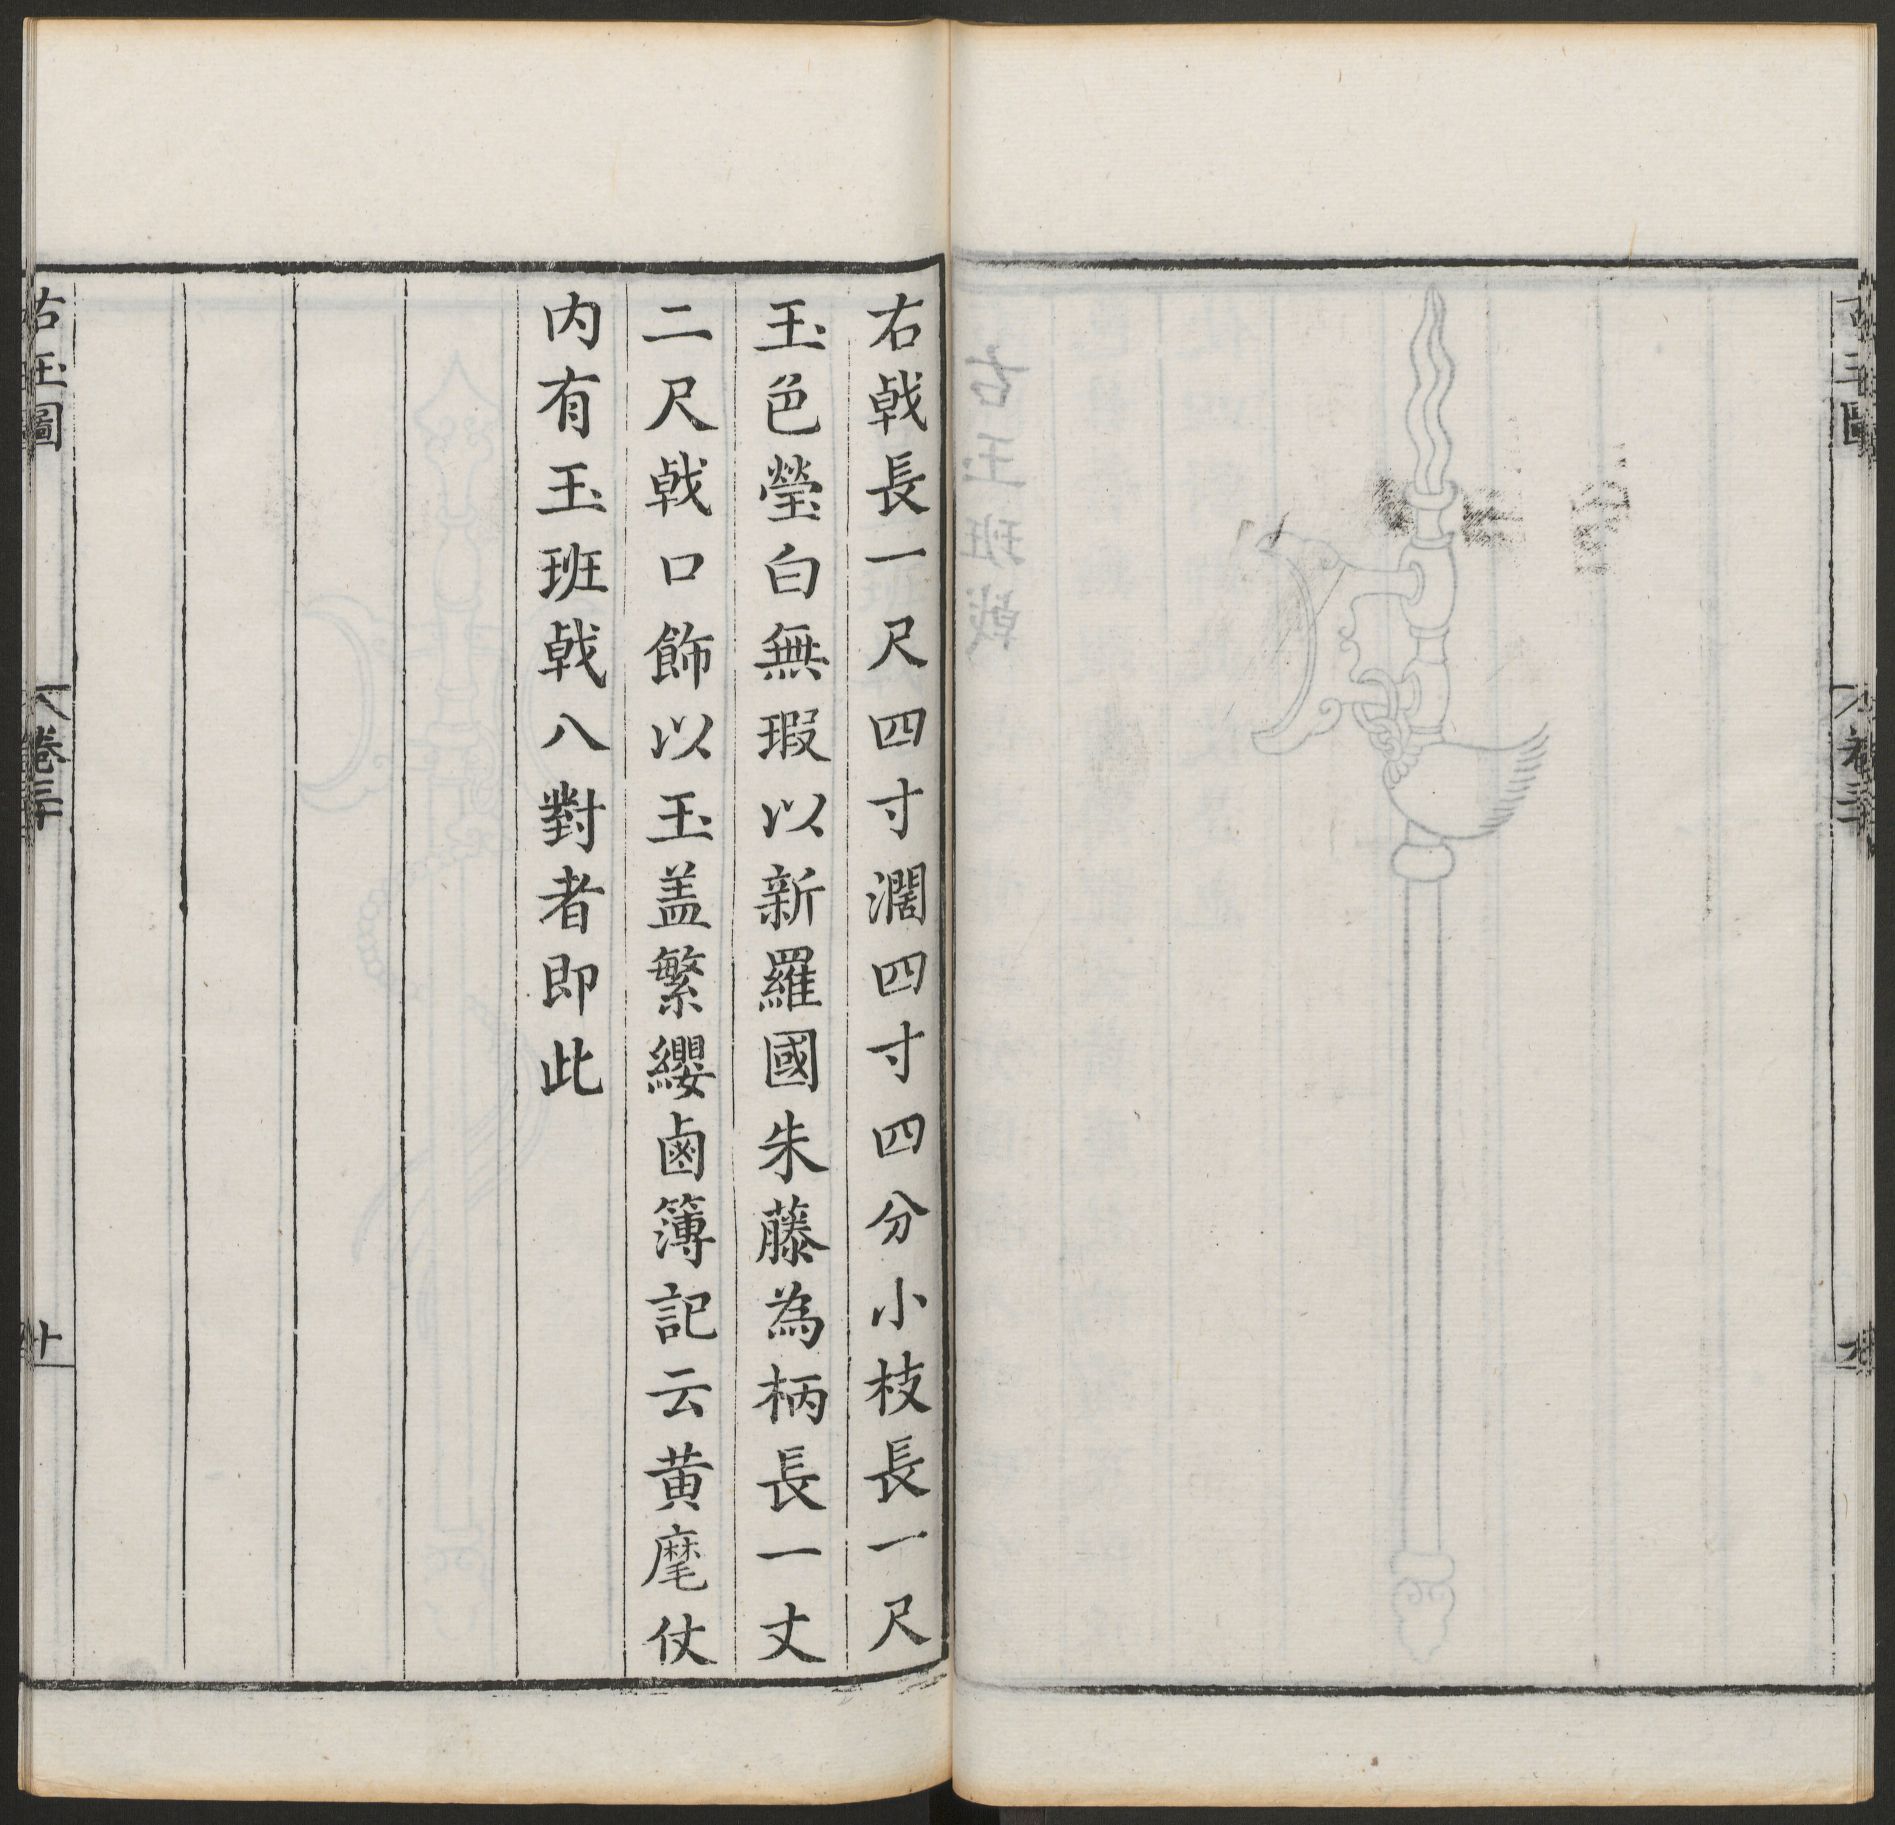 右戟長一尺四寸濶四寸四分小枝長一尺
玉色瑩白無瑕以新羅國朱藤為柄長一丈
二尺戟口飾以玉盖繁纓鹵簿記云黄麾仗
内有玉班戟八對者即此
古玉圖
卷三
十